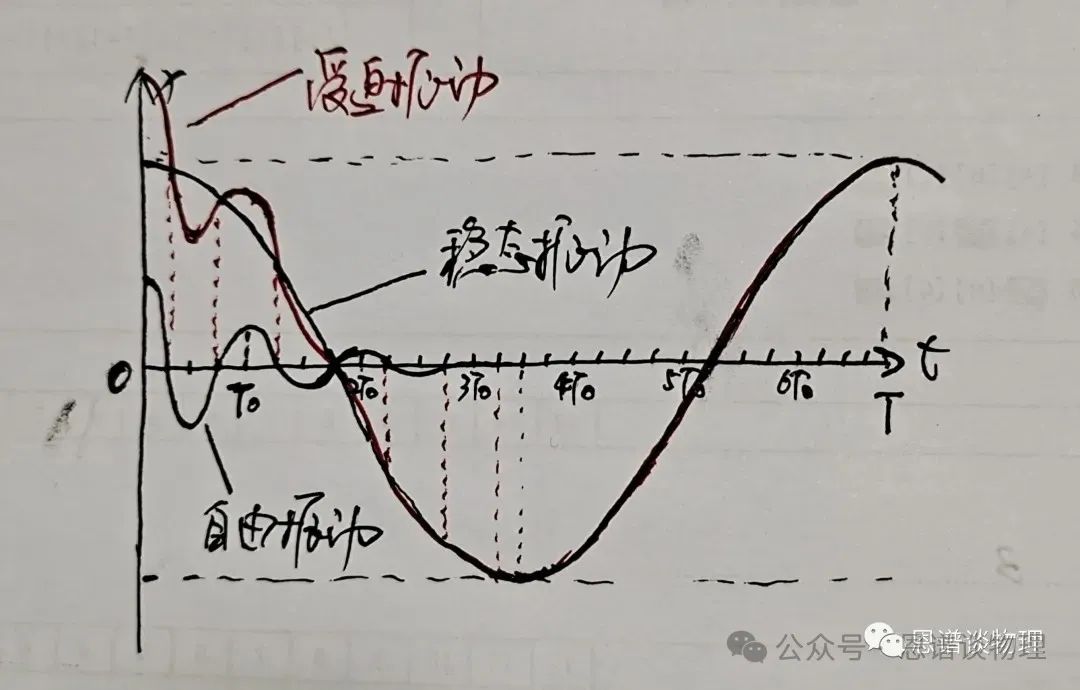 x
受迫振动
稳态振动
O
T₀
2T₀
3T₀
4T₀
5T₀
6T₀
t
T
自由振动
恩谱谈物理
公众号·恩谱谈物理